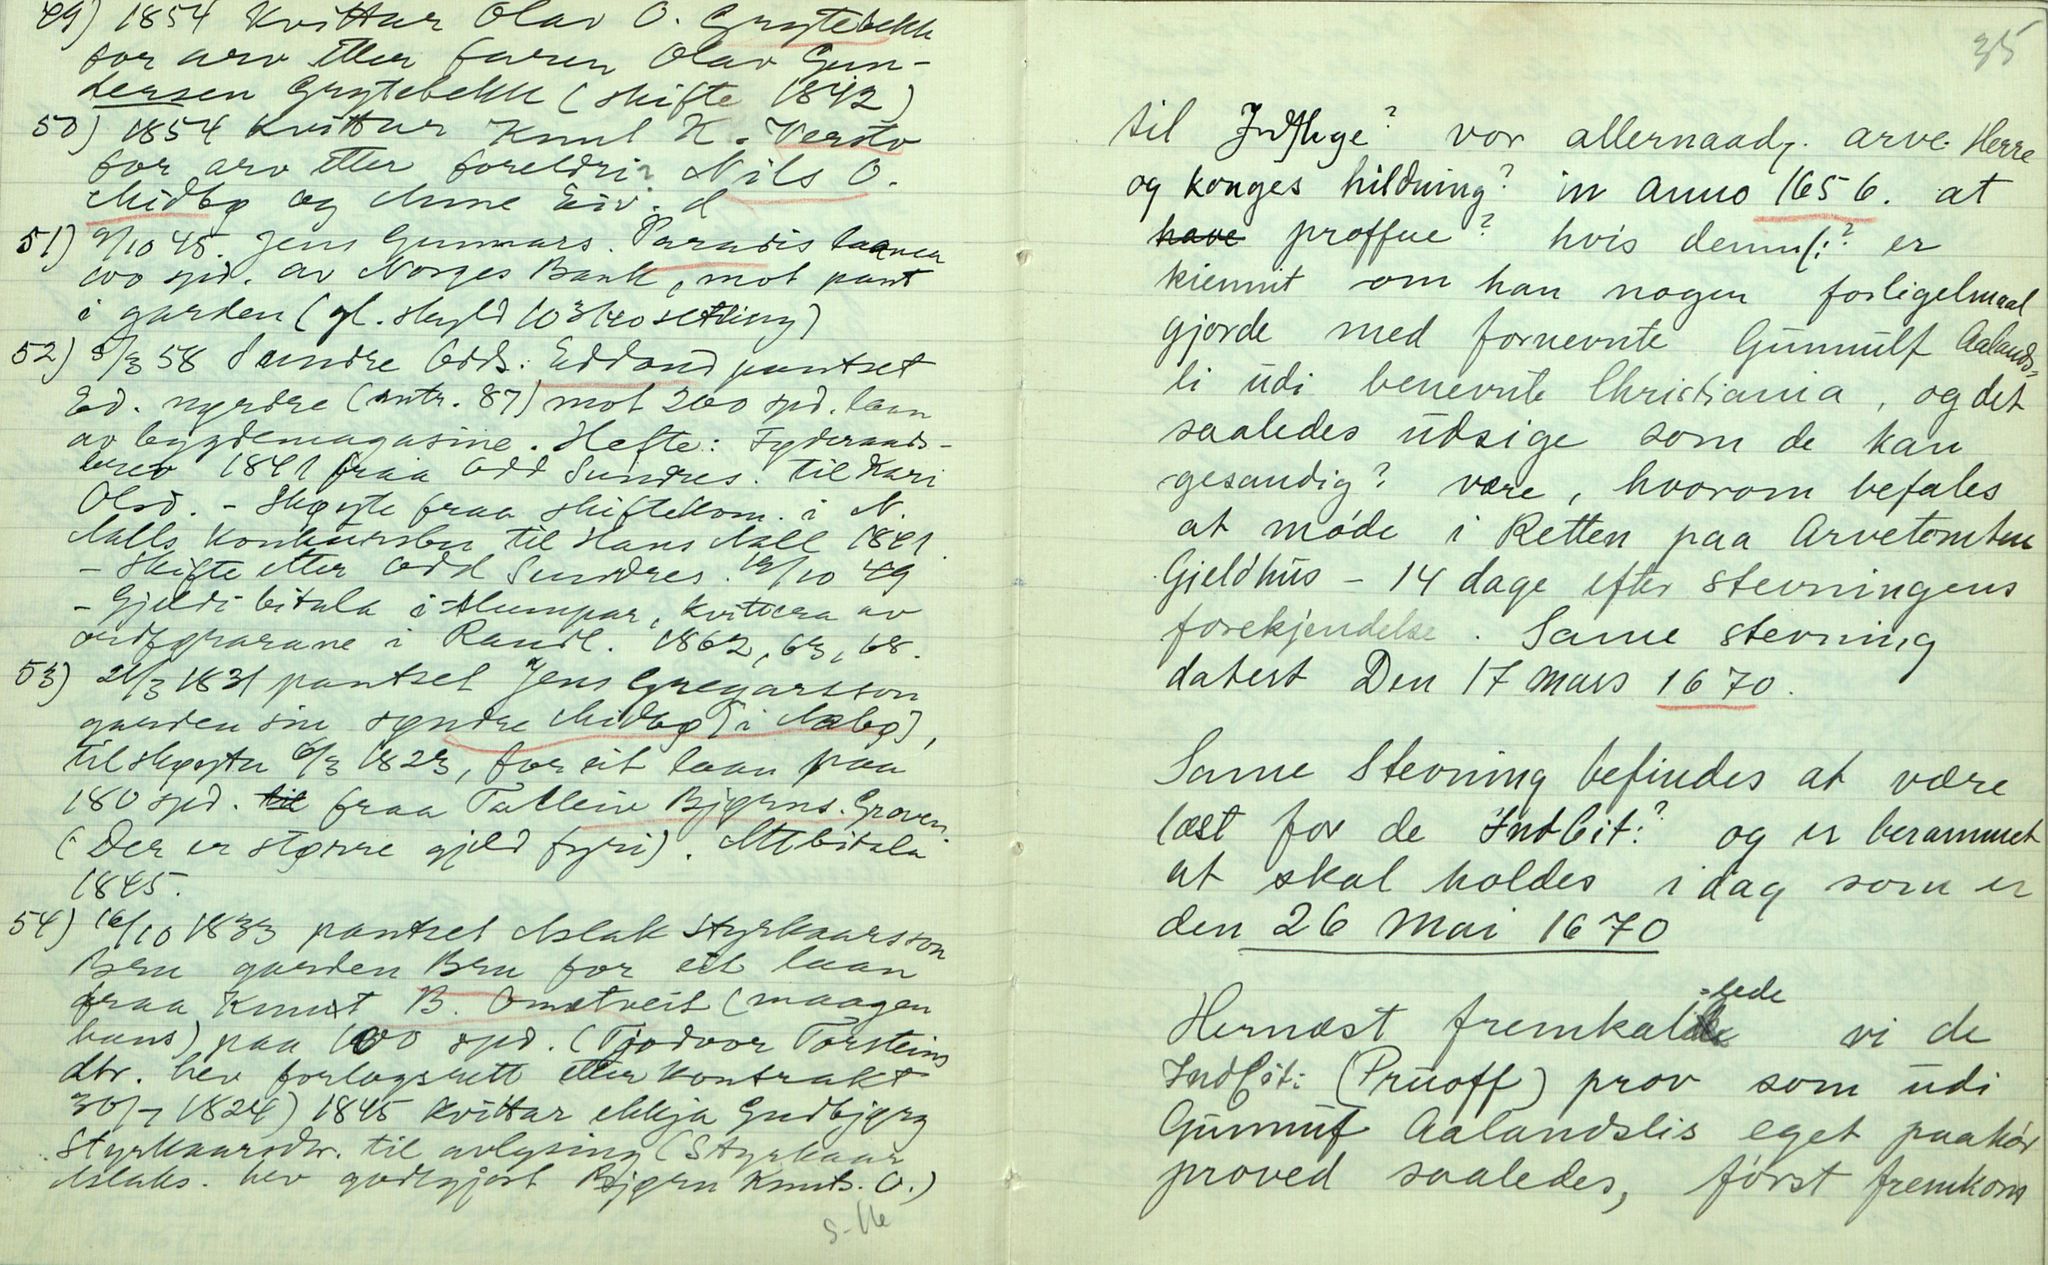 49) 1854 Kvittar Olav O. Grytebekk
for arv etter faren Olav Gun-
dersen Grytebekk (skifte 1842)
50) 1854 kvittar Knut K. Versto
for arv etter foreldri? Nils O.
Midbø og Anne Eiv. d
51) 9/10 45. Jens Gunnars. Paradis laaner
100 spd. av Norges Bank, mot pant
i garden (gl. skyld 10 3/40 setting)
52) 5/3 58 Sundre Odds. Edland pantset
Ed. nyrdre (mtr. 87) mot 200 spd. laan
av bygdemagasine. Hefte: Fyderaads-
brev 1841 fraa Odd Sundres. til Kari
Olsd. - Skøyte fraa skiftekom. i N.
Aalls konkursbu til Hans Aall 1841
- Skifte etter Odd Sundres. 12/10 49
- Gjeldi bitala i slumpar, kvittera av
ordførarane i Raudl. 1862, 63, 68.
53) 21/3 1831 pantset Jens Gregarsson
garden sin syndre Midbø [i Aabø],
tilskøytu 6/3 1823, for eit laan paa
180 spd. til fraa Talleiv Bjørns. Groven
(Der er større gjeld fyri). Attbitala
1845.
54) 16/10 1833 pantset Aslak Styrkaarsson
Bru garden Bru for eit laan
fraa Knut B. Omtveit (maagen
hans) paa 100 spd. (Tjodvor Torsteins
dtr. hev forlogsrett etter kontrakt
30/7 1824) 1845 kvittar ekkja Gudbjørg
Styrkaarsdtr. til avlysing (Styrkaar
Aslaks. hev godtgjort Bjørn Knuts. O.)
35
til ? vor allernaadg. arve Herre
og konges hildning? in anno 1656. at
have proffue? hvis dennf:? er
kiennit om han nogen forligelmaal
gjorde med fornevnte Gunnulf Aalands-
li udi benevnte Christiania, og det
saaledes udsige som de kan
gesandig? være, hvorom befales
at møde i Retten paa Arvetomten
Gjeldhus - 14 dage efter stevningens
forekjendelse. Same stevning
datert Den 17 mars 1670.
Same Stevning befindes at være
læst for de Indcit:? og er berammet
at skal holdes idag som er
den 26 Mai 1670
Hernæst fremkallede vi de
Indcit: (Pruoff) prov som udi
Gunnuf Aalandslis eget paahør
proved saaledes, først fremkom